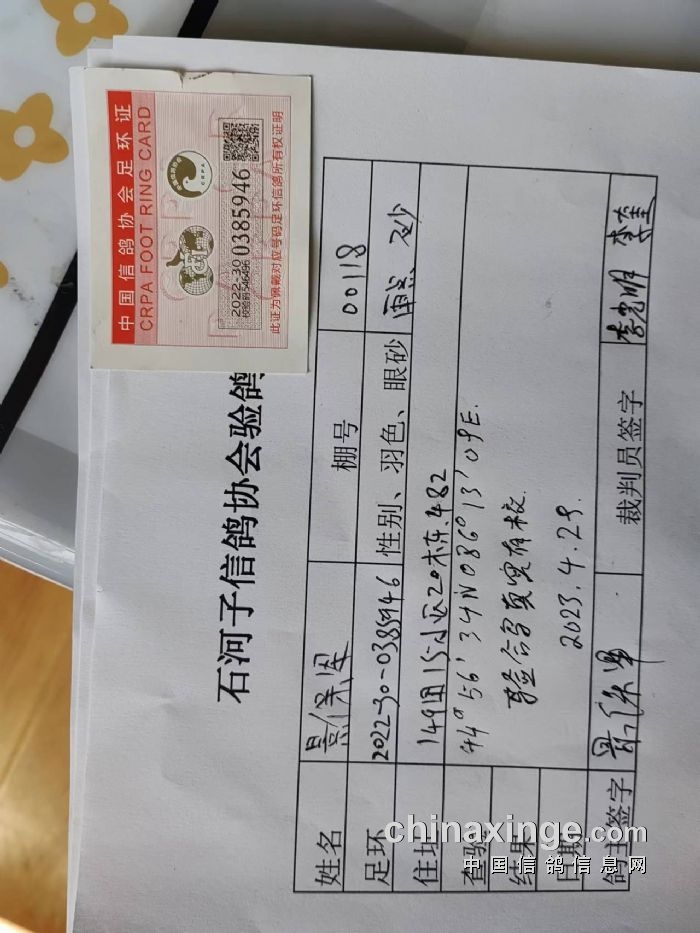 中国信鸽协会足环证
CRPA FOOT RING CARD
CRPA
2022-30 0385946
校验码546496
此证为佩戴对应号码足环信鸽所有权证明
石河子信鸽协会验鸽
姓名 棚号 00118
足环 2022-30-0385946 性别、羽色、眼砂 砂
住址 149团15小区20栋482
44°56'34N086°13'09E.
查验 验合写真实有效
结果
日期 2023.4.29.
鸽主签字 裁判员签字 李光明
chinaxinge.com
中国信鸽信息网